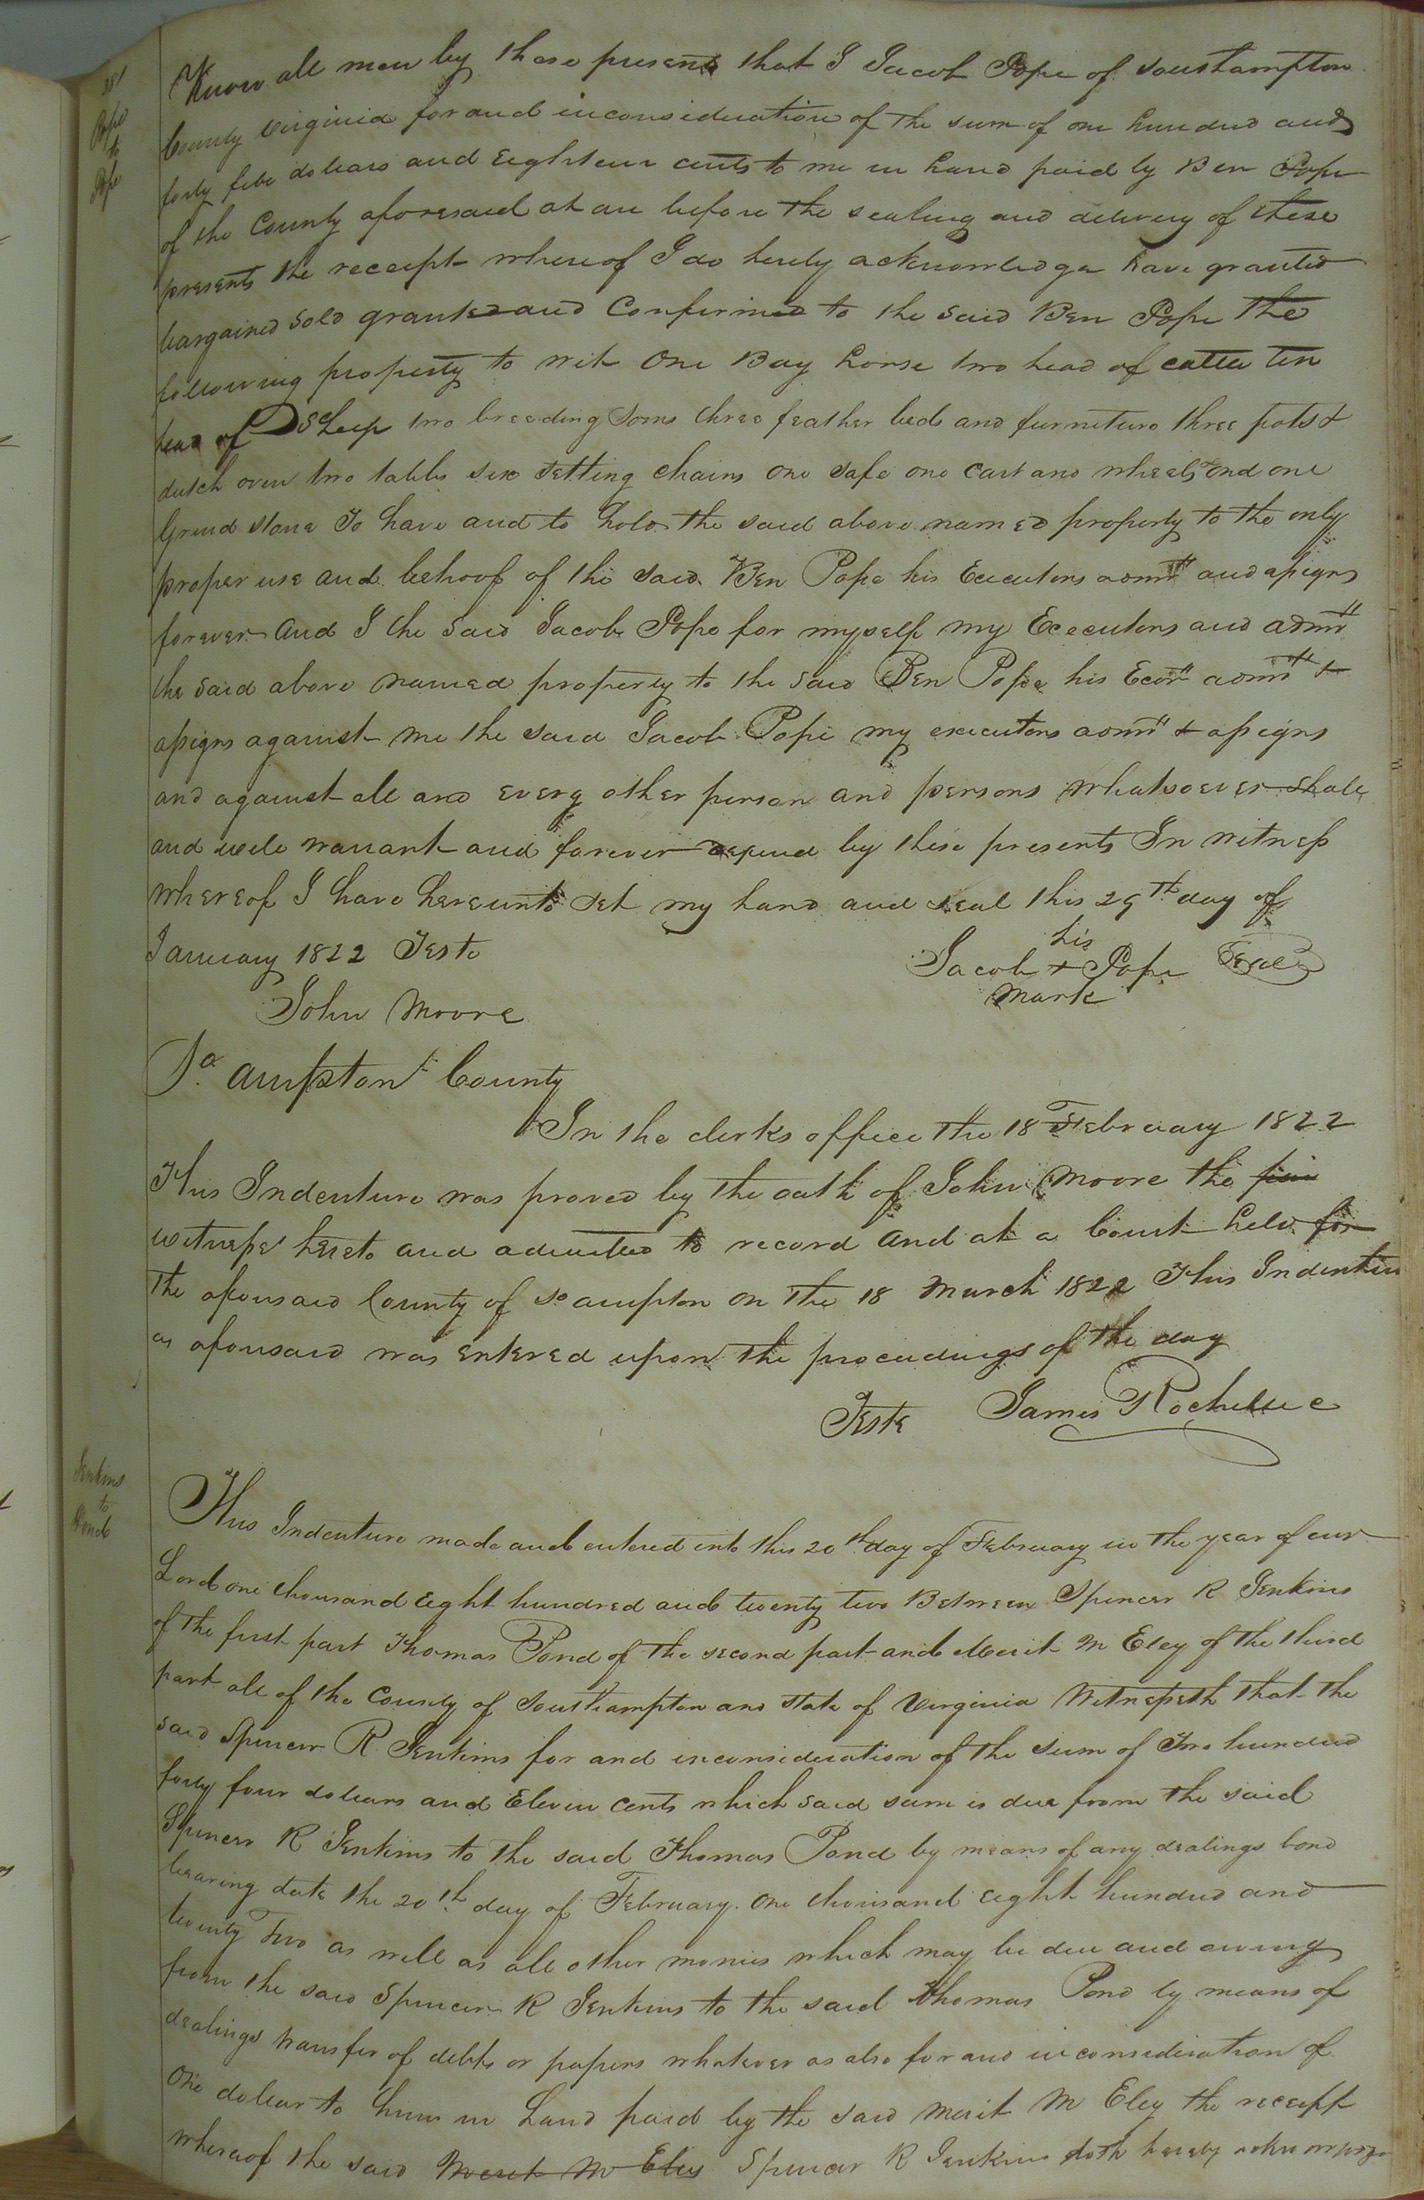 381
Pope
to
Pope
Know all men by these presents that I Jacob Pope of Southampton
County Virginia for and in consideration of the sum of one hundred and
forty five dollars and Eighteen cents to me in hand paid by Ben Pope
of the County aforesaid at an before the sealing and delivery of these
presents the receipt whereof I do hereby acknowledge have granted
bargained sold granted and Confirmed to the said Ben Pope the
following property to wit One Bay horse two head of cattle ten
head of Sheep two breeding Sows three feather beds and furniture three pots &
dutch oven two tables six setting chairs one safe one cart and wheels and one
Grind stone To have and to hold the said above named property to the only
proper use and behoof of the said Ben Pope his Executors admrs and assigns
forever And I the Said Jacob Pope for myself my Executors and admrs
the said above named property to the said Ben Pope his Ecors admrs &
assigns against me the said Jacob Pope my executors admrs & assigns
and against all and every other person and persons whatsoever shall
and will warrant and forever defend by these presents In witness
whereof I have hereunto set my hand and seal this 29th day of
January 1822 Teste
his
Jacob + Pope Seal
mark
John Moore
So. ampton County
In the clerks office the 18 February 1822
This Indenture was proved by the oath of John Moore the
witness hereto and admitted to record and at a Court held for
the aforesaid County of So ampton on the 18 March 1822 This Indenture
as aforesaid was entered upon the proceedings of the day
Teste James Rochelle C
Jenkins
to
Pond
This Indenture made and entered into this 20th day of February in the year of our
Lord one thousand Eight hundred and twenty two Between Spencer R Jenkins
of the first part Thomas Pond of the second part and Merit M Eley of the third
part all of the County of Southampton and State of Virginia Witnesseth that the
said Spencer R Jenkins for and in consideration of the sum of Two hundred
forty four dollars and Eleven cents which said sum is due from the said
Spencer R Jenkins to the said Thomas Pond by means of any dealings bond
bearing date the 20th day of February one thousand eight hundred and
twenty Two as well as all other monies which may be due and owing
from the said Spencer R Jenkins to the said Thomas Pond by means of
dealings transfer of debts or papers whatever as also for and in consideration of
One dollar to him in hand paid by the said Merit M Eley the receipt
whereof the said Merit M Eley Spencer R Jenkins doth hereby acknowledge